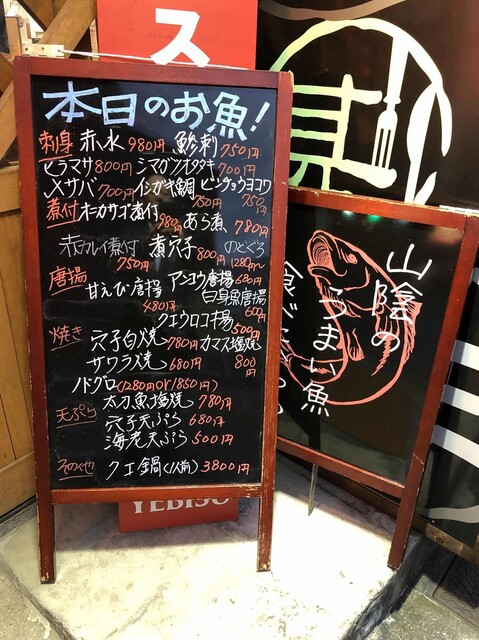 ス
本日のお魚!
刺身 赤水 980円 鯵刺 750円
ヒラマサ 800円 シマガツオタタキ 700円
〆サバ 700円 イシガキ鯛 750円 ビンチョウヨコワ 750円
煮付 オニカサゴ煮付 980円 あら煮 780円
赤カレイ煮付 750円 煮穴子 800円 のどぐろ 1280円〜
唐揚 アンコウ唐揚 680円
甘えび唐揚 480円 白身魚唐揚 600円
クエウロコ揚 500円
焼き 穴子白焼 780円 カマス塩焼 800円
サワラ焼 680円
ノドグロ(1280円or1850円)
太刀魚塩焼 780円
天ぷら 穴子天ぷら 680円
海老天ぷら 500円
そのた クエ鍋(1人前) 3800円
YEBISU
山陰の
うまい魚